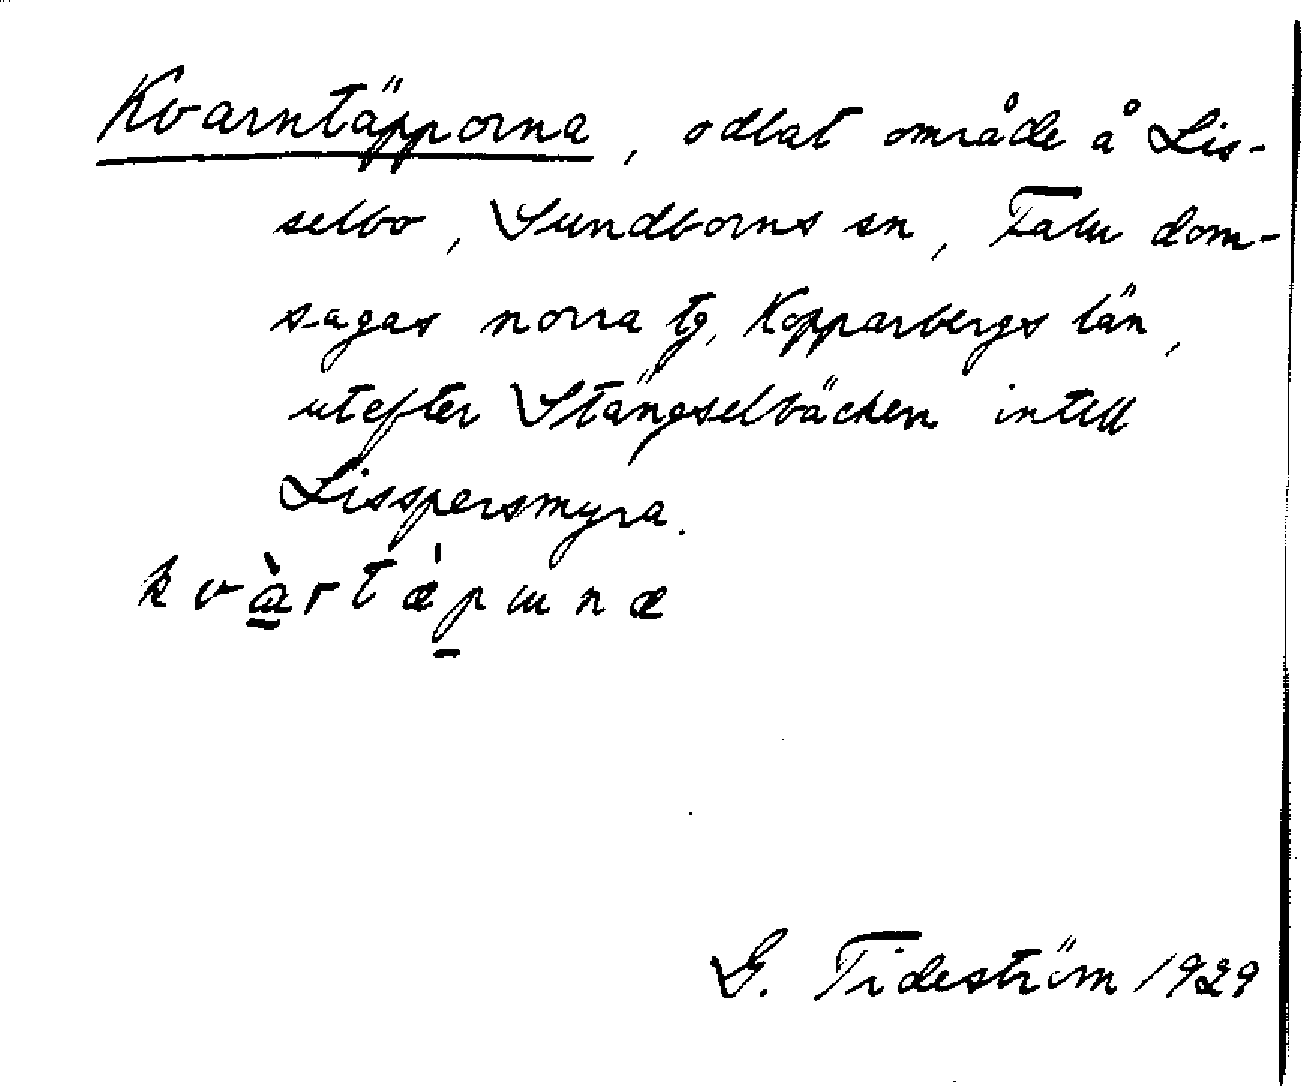 Kvarntäpporna, odlat område å Lis-
selbo, Sundborns sn, Falu dom-
sagas norra tg, Kopparbergs län,
utefter Stängselbäcken intill
Lisspersmyra.
kvàrtǽpɯnæ
G. Tideström 1929